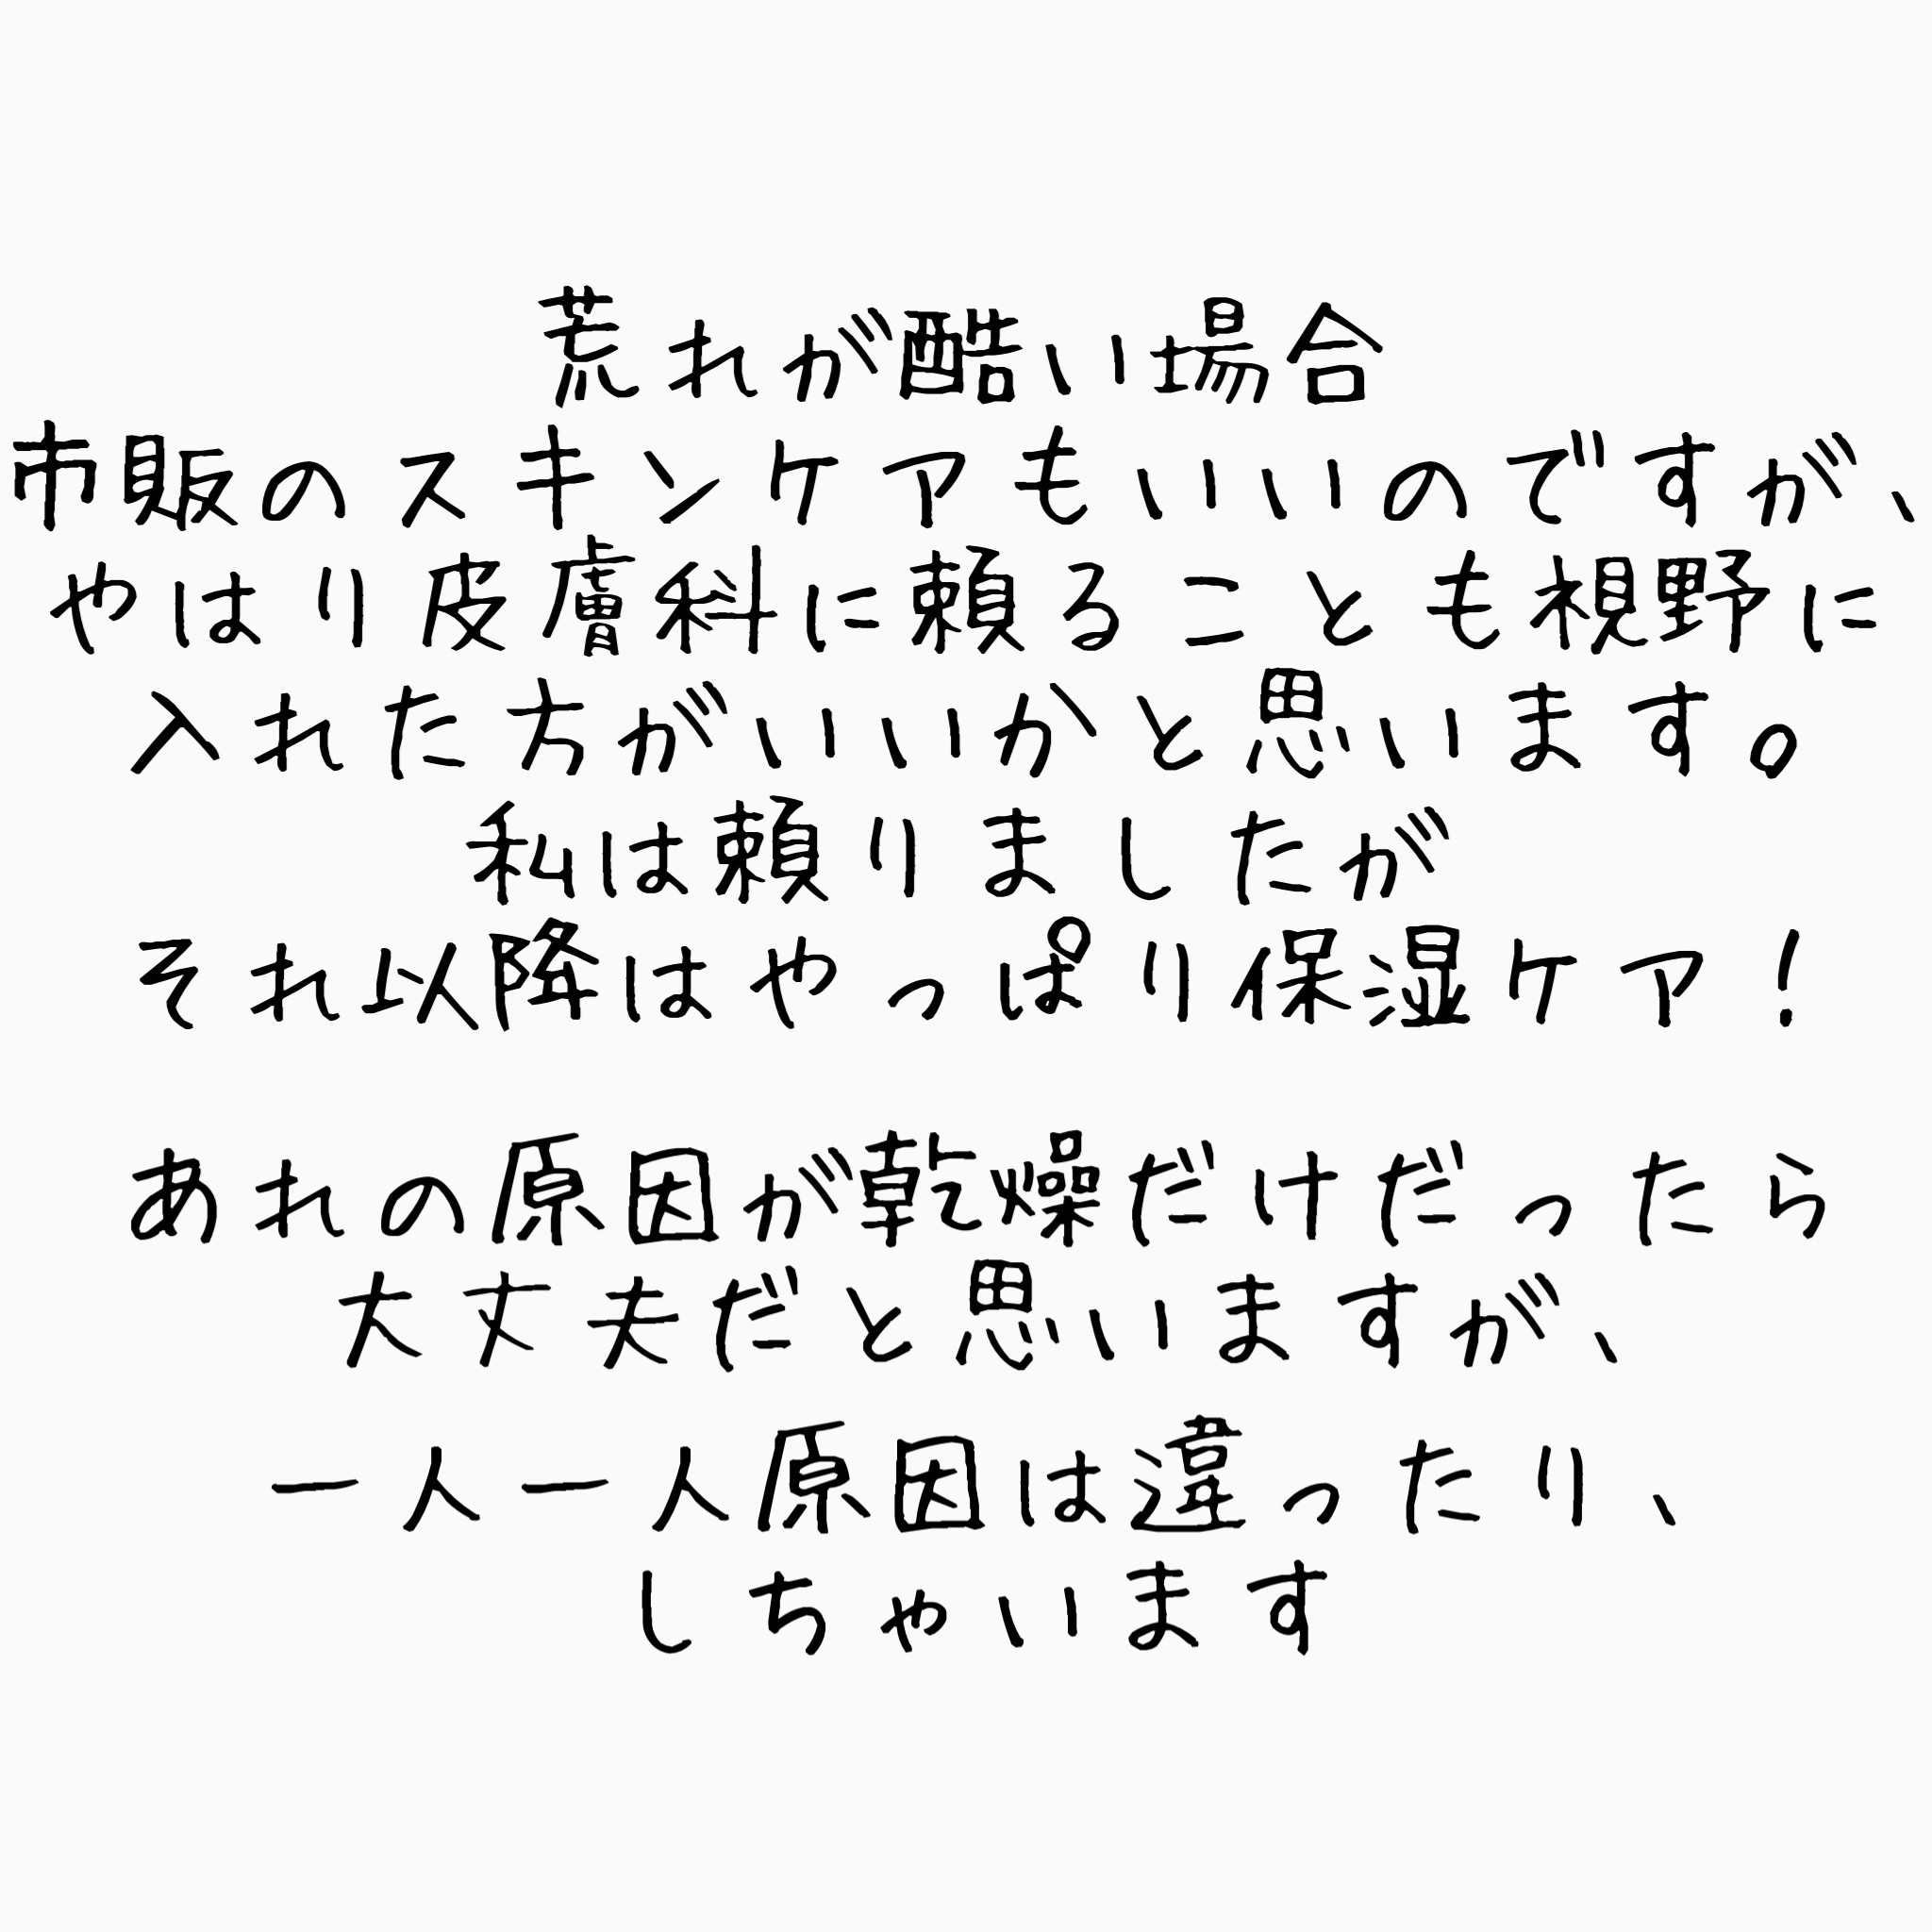 荒れが酷い場合
市販のスキンケアもいいのですが、
やはり皮膚科に頼ることも視野に
入れた方がいいかと思います。
私は頼りましたが
それ以降はやっぱり保湿ケア！
あれの原因が乾燥だけだったら
大丈夫だと思いますが、
一人一人原因は違ったり、
しちゃいます